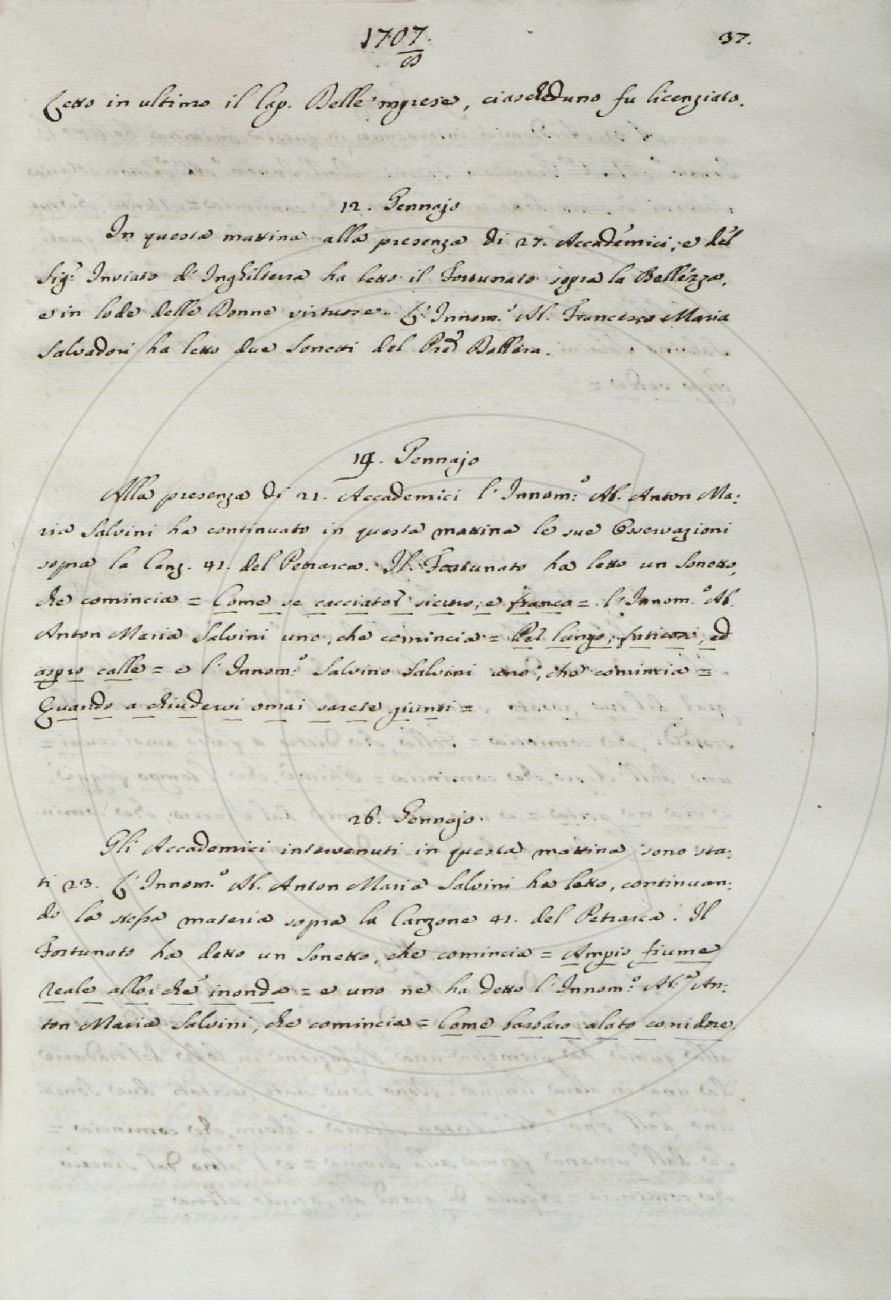 1707/8 37.
Letto in ultimo il Cap. Delle 'mprese, ciascheduno fu licenziato.
12. Gennajo
In questa mattina alla presenza di 27. Accademici, e del
Sig.r Inviato d'Inghilterra ha letto il Fortunato sopra la Bellezza,
e in lode delle Donne virtuose. L'Innom.o Ab. Francesco Maria
Salvadori ha letto due Sonetti del
19. Gennajo
Alla presenza di 21. Accademici l'Innom.o Ab. Anton Ma:
ria Salvini ha continuato in questa mattina le sue Osservazioni
sopra la Canz. 41. del Petrarca. Il Fortunato ha letto un Sonetto,
che comincia = Come se cacciator sicuro, e franco = l'Innom.o Ab.
Anton Maria Salvini uno, che comincia = Pel lungo, faticoso, ed
aspro calle = e l'Innom.o Salvino Salvini uno, che comincia =
Quando a chiudervi omai sarete giunti =
26. Gennajo.
Gli Accademici intervenuti in questa mattina sono sta:
ti 23. L'Innom.o Ab. Anton Maria Salvini ha letto, continuan:
do la stessa materia sopra la Canzone 41. del Petrarca. Il
Fortunato ha detto un Sonetto, che comincia = Ampio fiume
reale allor che inonda = e uno ne ha detto l'Innom.o Ab.e An:
ton Maria Salvini, che comincia = Come barbaro alato corridore